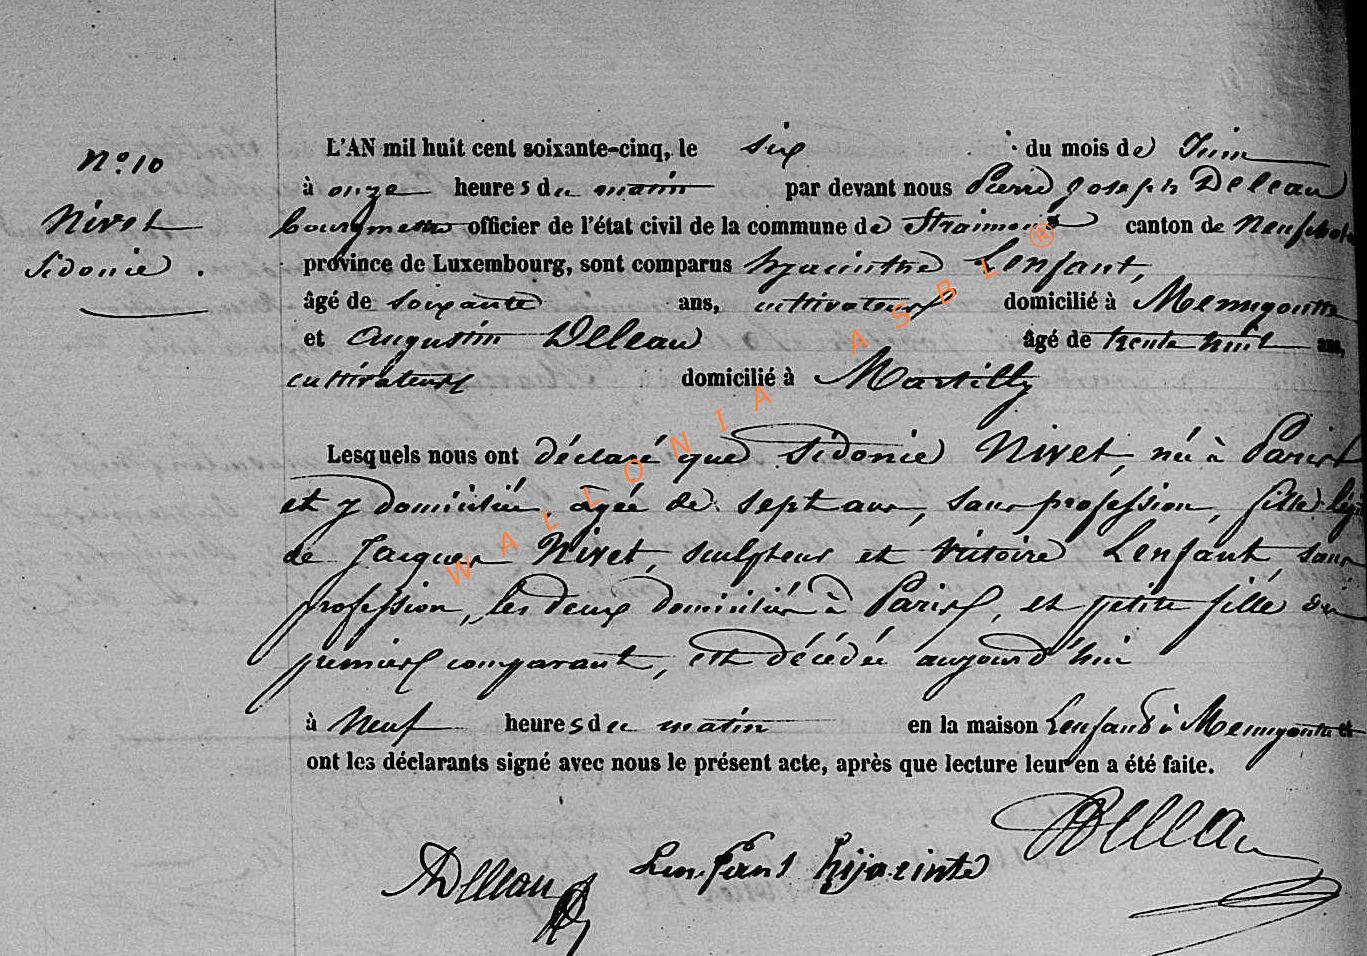 N° 10
Nivet
Sidonie.
L'AN mil huit cent soixante-cinq, le six du mois de Juin
à onze heures du matin par devant nous Pierre Joseph Deleau
bourgmestre officier de l'état civil de la commune de Straimont canton de Neufchate
province de Luxembourg, sont comparus hyacinthe Lenfant,
âgé de soixante ans, cultivateur domicilié à Menugoutte
et Augustin Deleau âgé de trente huit ans,
cultivateur domicilié à Martilly
Lesquels nous ont déclaré que Sidonie Nivet, née à Paris
et y domiciliée, âgée de sept ans, sans profession, fille lég
de Jacques Nivet, sculpteur et Victoire Lenfant, sans
profession, les deux domiciliés à Paris, et petite fille du
premier comparant, est décédée aujourd'hui
à Neuf heures du matin en la maison Lenfant à Menugoutte et
ont les déclarants signé avec nous le présent acte, après que lecture leur en a été faite.
ADeleau Lenfant hijacinte Deleau
WALLONIA ASBL ®